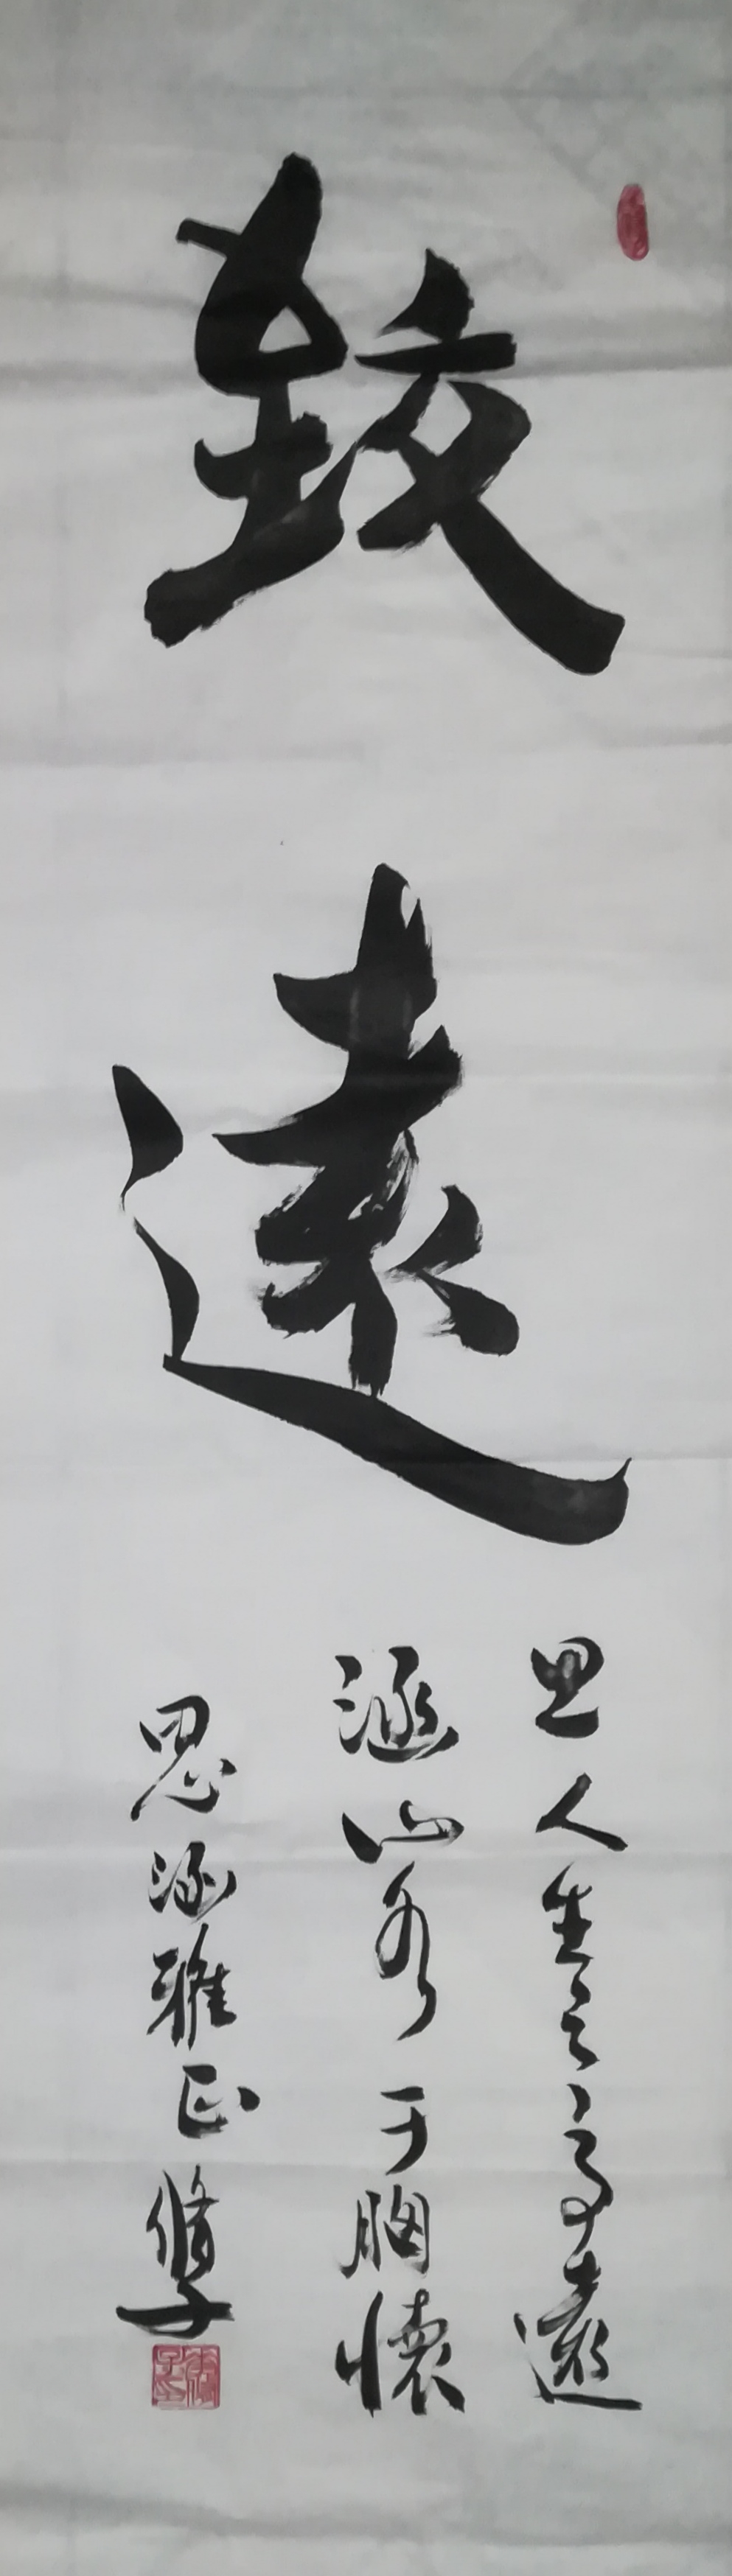 致遠
思人生之高遠
涵山水于胸懷
思涵雅正修子